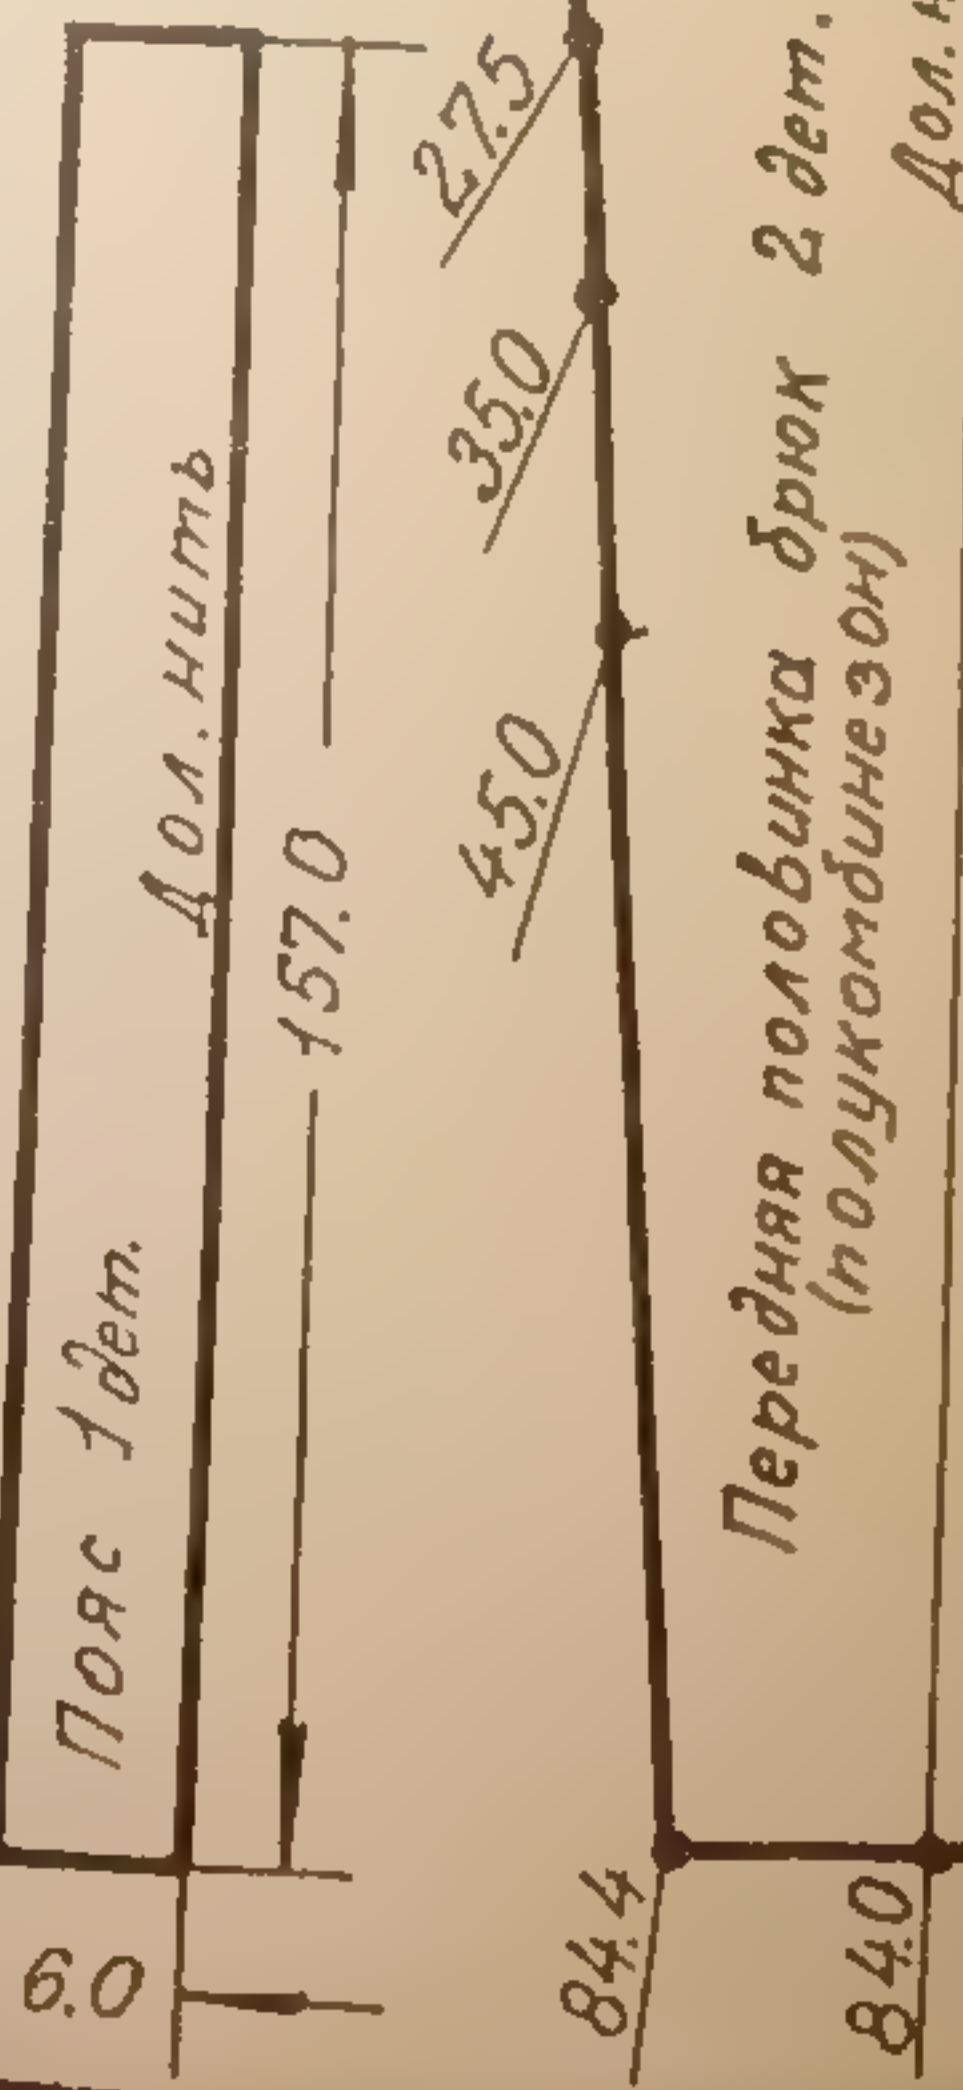 Пояс 1 дет.
Дол. нить
157.0
6.0
27.5
35.0
45.0
84.4
84.0
Передняя половинка брюк 2 дет.
(полукомбинезон)
Дол.